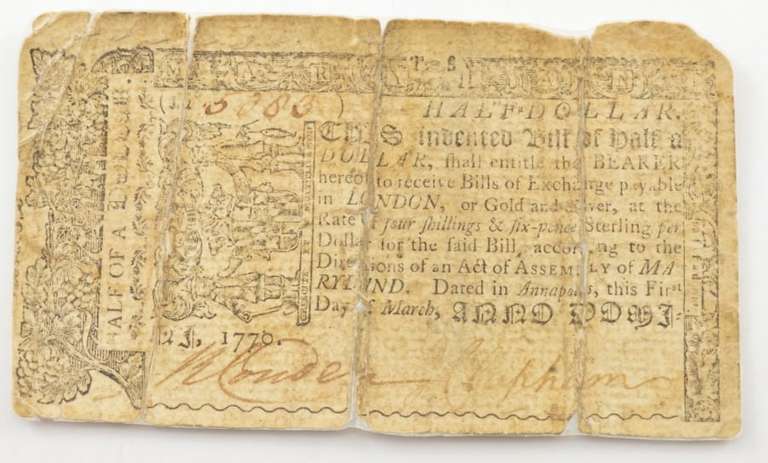 HALF OF A DOLLAR.
MARYLAND
HALF-DOLLAR.
THIS indented Bill of Half a
DOLLAR, shall entitle the BEARER
hereof to receive Bills of Exchange payable
in LONDON, or Gold and Silver, at the
Rate of four shillings & six-pence Sterling per
Dollar for the said Bill, according to the
Directions of an Act of ASSEMBLY of MA
RYLAND. Dated in Annapolis, this First
Day of March, ANNO DOMI-
NI, 1770.